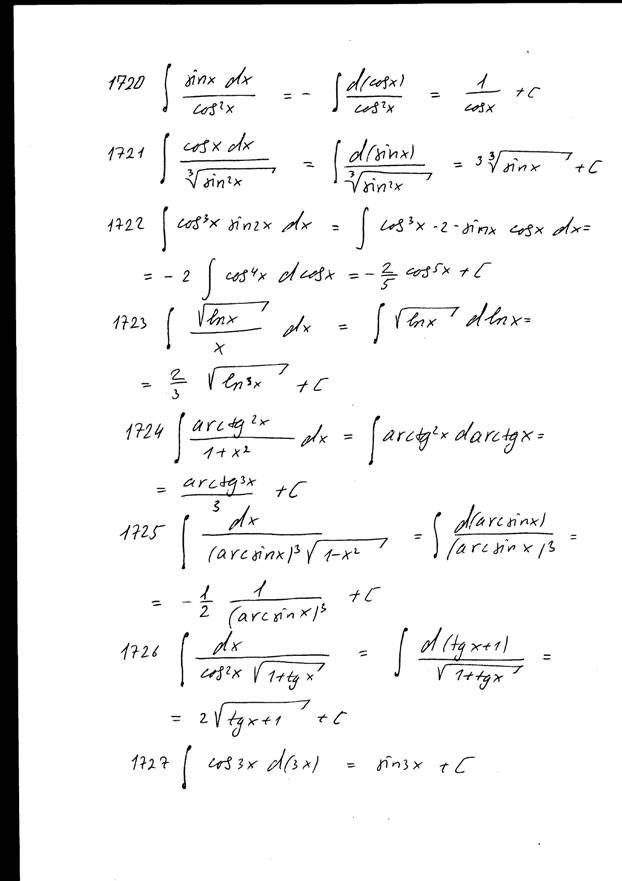 1720 ∫ sinx dx / cos²x = - ∫ d(cosx) / cos²x = 1 / cosx + C
1721 ∫ cosx dx / ∛(sin²x) = ∫ d(sinx) / ∛(sin²x) = 3 ∛(sinx) + C
1722 ∫ cos³x sin2x dx = ∫ cos³x · 2 · sinx cosx dx =
= - 2 ∫ cos⁴x d cosx = - 2/5 cos⁵x + C
1723 ∫ √(lnx) / x dx = ∫ √(lnx) d lnx =
= 2/3 √(ln³x) + C
1724 ∫ arctg²x / 1+x² dx = ∫ arctg²x d arctgx =
= arctg³x / 3 + C
1725 ∫ dx / (arcsinx)³ √(1-x²) = ∫ d(arcsinx) / (arcsinx)³ =
= - 1/2 1 / (arcsinx)³ + C
1726 ∫ dx / cos²x √(1+tgx) = ∫ d(tgx+1) / √(1+tgx) =
= 2√(tgx+1) + C
1727 ∫ cos3x d(3x) = sin3x + C